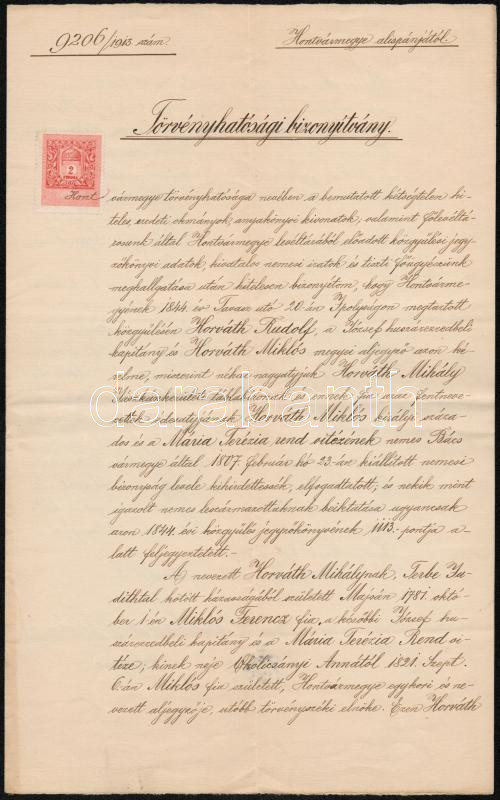 9206/1913 szám.
Hontvármegye alispánjától.
Törvényhatósági bizonyítvány.
2
KORONA
Hont
vármegye törvényhatósága nevében a bemutatott kétségtelen hi-
teles, eredeti okmányok, anyakönyvi kivonatok; valamint főlevéltá-
rosunk által Hontvármegye levéltárából előadott közgyülési jegy-
zőkönyvi adatok, hivatalos nemesi iratok és tiszti főügyészünk
meghallgatása után hitelesen bizonyítom, hogy Hontvárme-
gyének 1844. év Tavasz utó 20.-án Ipolyságon megtartott
közgyülésén Horváth Rudolf, a József huszárezredbeli
kapitány és Horváth Miklós megyei aljegyző azon ké-
relme, miszerint néhai nagyatyjuk Horváth Mihály
Jászkúnkerületi táblabírónak és ennek fia azaz fentneve-
zettek édesatyjának Horváth Miklós királyi száza-
dos és a Mária Terézia rend vitézének nemes Bács
vármegye által 1807. február hó 23-án kiállított nemesi
bizonyság levele kihirdettessék, elfogadtatott, és nekik mint
igazolt nemes leszármazottaknak beiktatása ugyancsak
azon 1844. évi közgyülés jegyzőkönyvének 1113.- pontja a-
latt feljegyeztetett.-
A nevezett Horváth Mihálynak, Terbe Ju-
dithtal kötött házasságából született Majsán 1781. októ-
ber 1-én Miklós Ferencz fia, a későbbi József hu-
szárezredbeli kapitány és a Mária Terézia Rend vi-
téze; kinek neje Gholcsányi Annától 1821. Szept.
6-án Miklós fia született, Hontvármegye egykori és ne-
vezett aljegyzője, utóbb törvényszéki elnöke. Ezen Horváth
darabanth